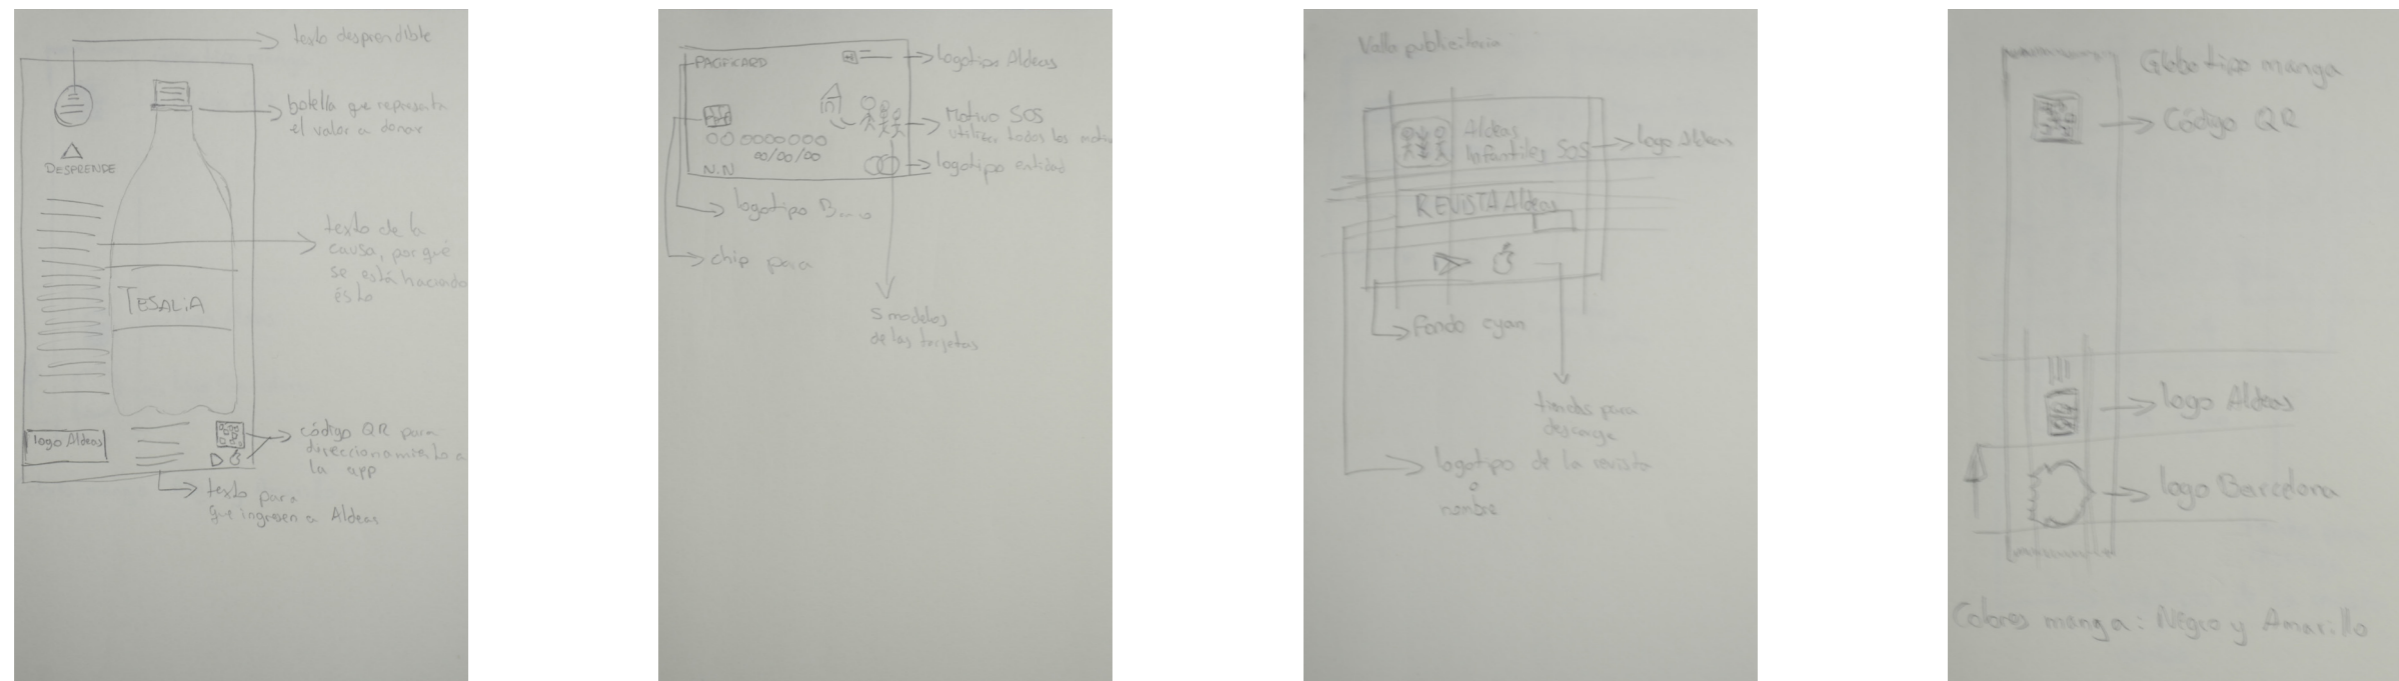 texto desprendible
botella que representa
el valor a donar
DESPRENDE
texto de la
causa, por qué
se está haciendo
ésto
TESALIA
logo Aldeas
código QR para
direccionamiento a
la app
texto para
que ingresen a Aldeas
PACIFICARD
logotipo Aldeas
Motivo SOS
utilizar todos los
00 0000000
00/00/00
N.N
logotipo entidad
logotipo Banco
chip para
5 modelos
de las tarjetas
Valla publicitaria
Aldeas
Infantiles SOS
logo Aldeas
REVISTA Aldeas
Fondo cyan
tiendas para
descarga
logotipo de la revista
o
nombre
Globo tipo manga
Código QR
logo Aldeas
logo Barcelona
Colores manga: Negro y Amarillo